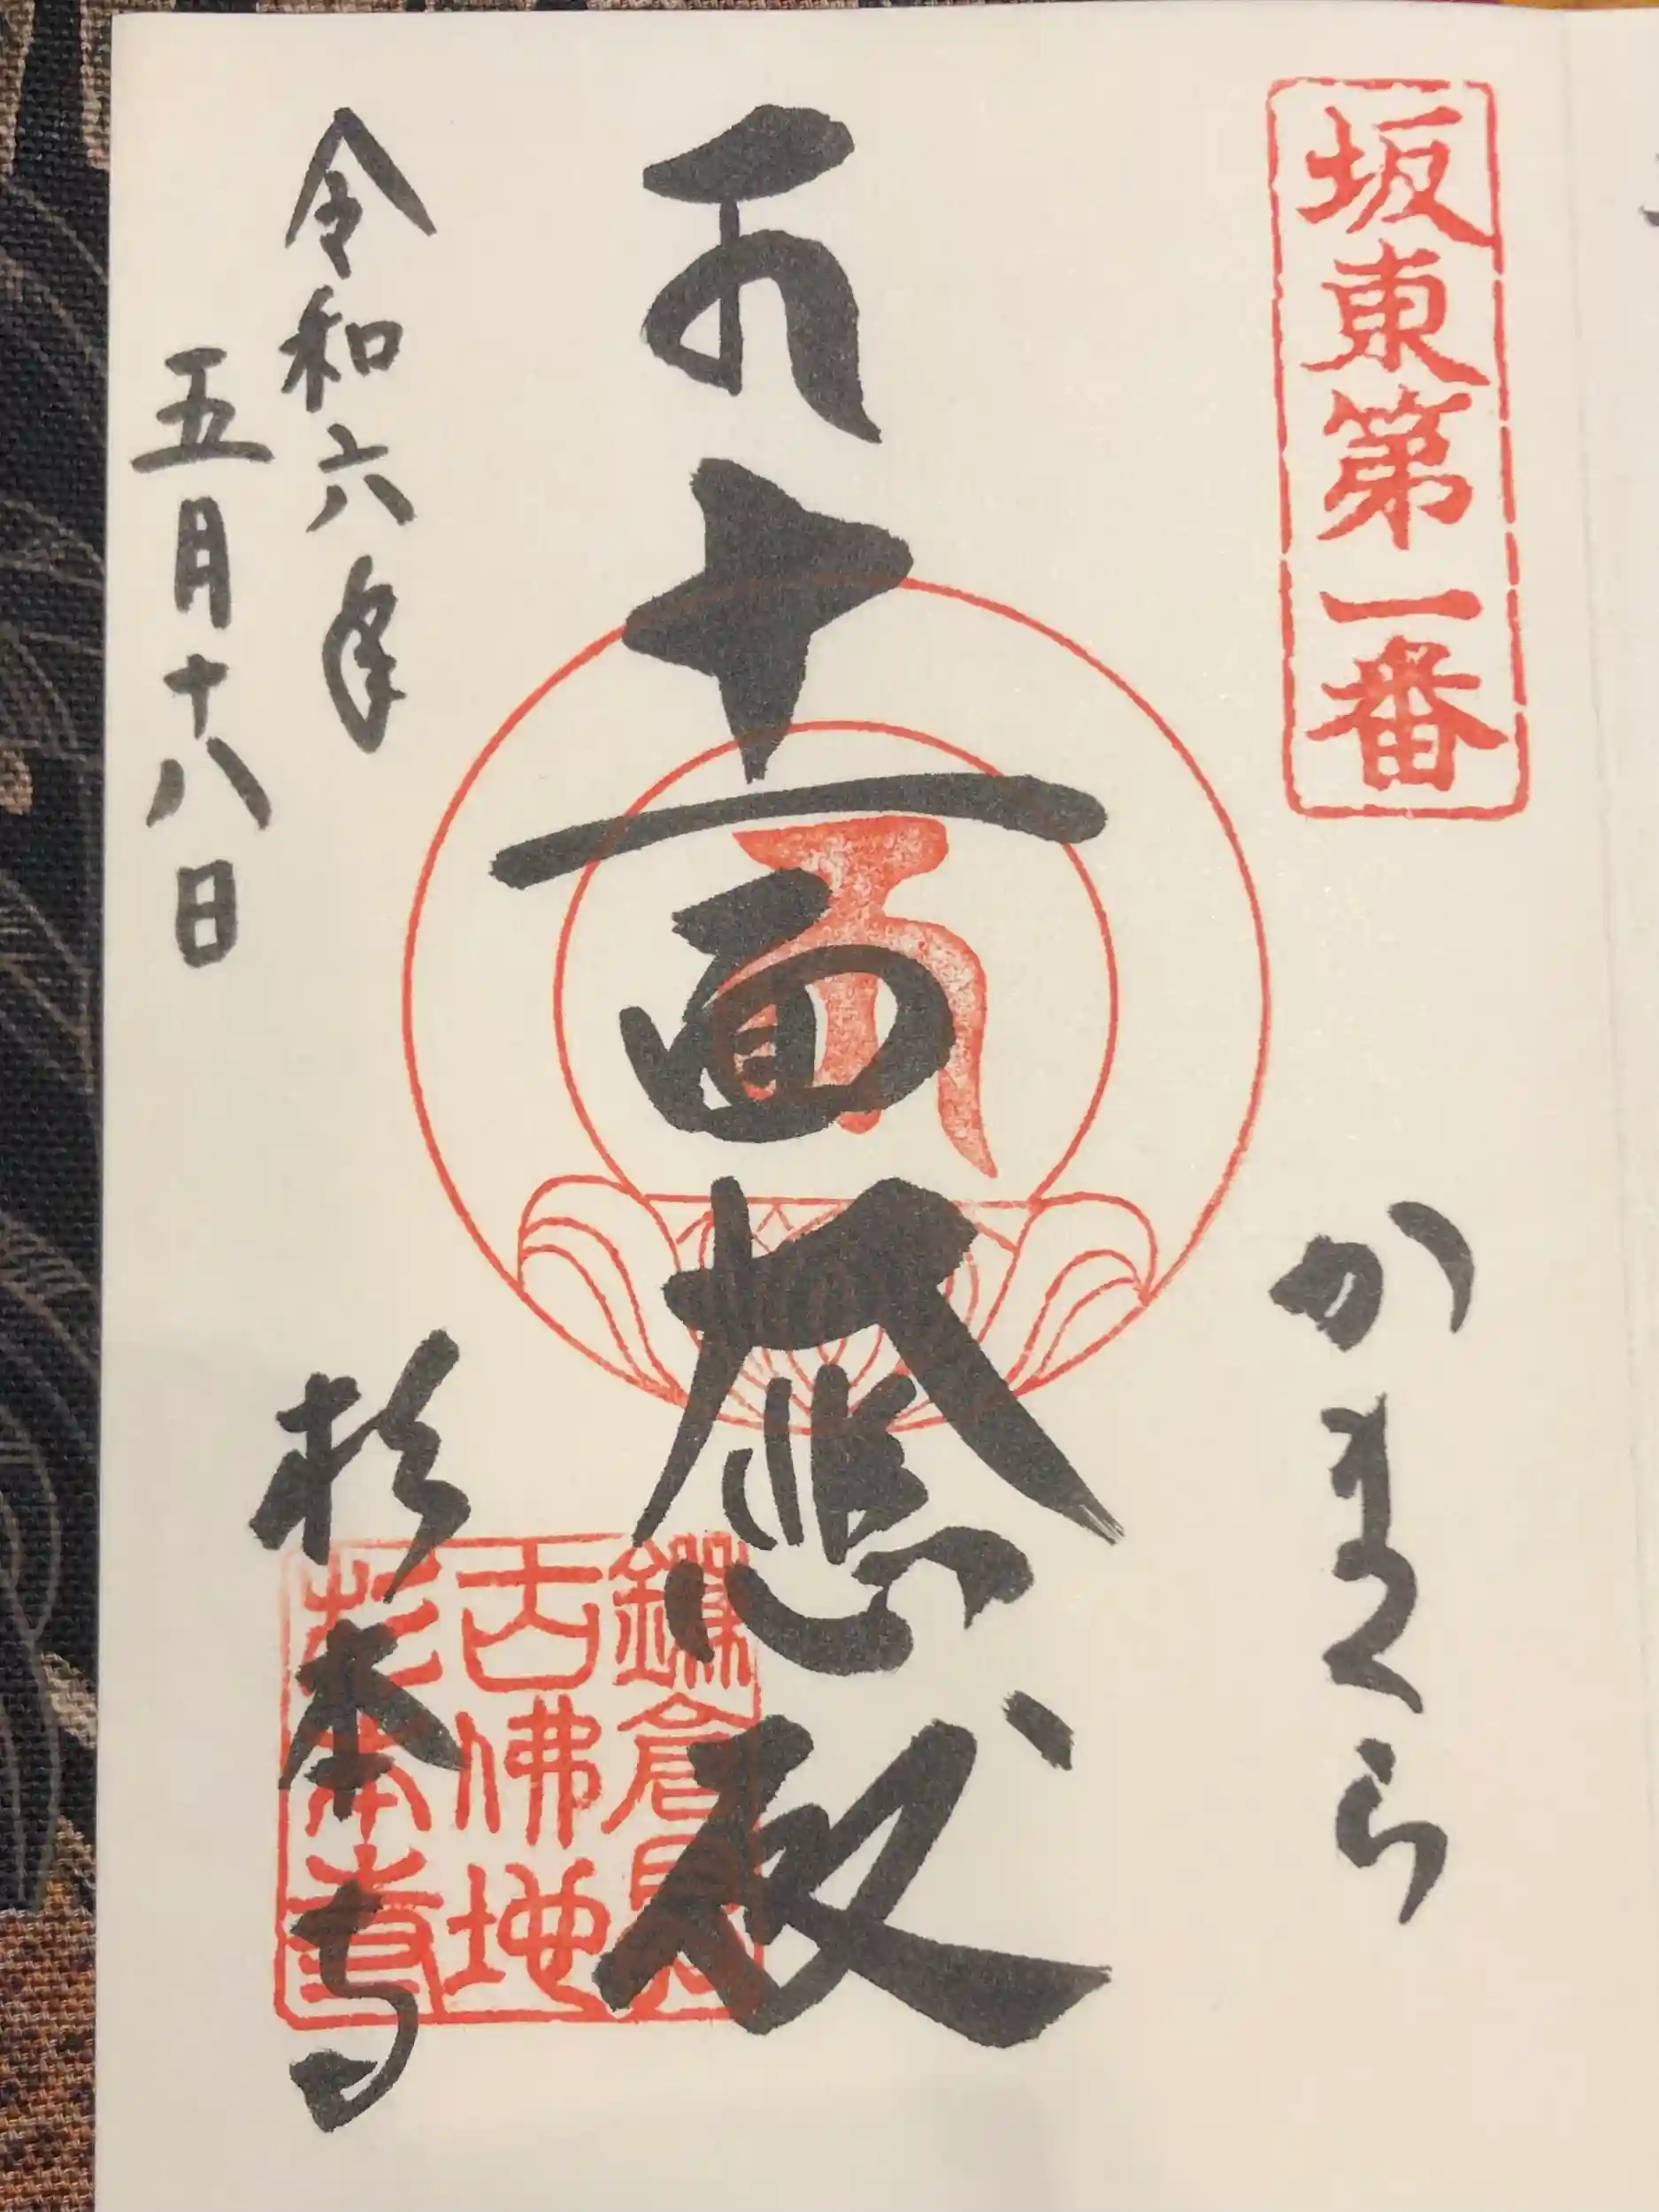 坂東第一番
かまくら
十一面大悲殿
鎌倉最
古佛地
杉本寺
令和六年
五月十八日
杉本寺